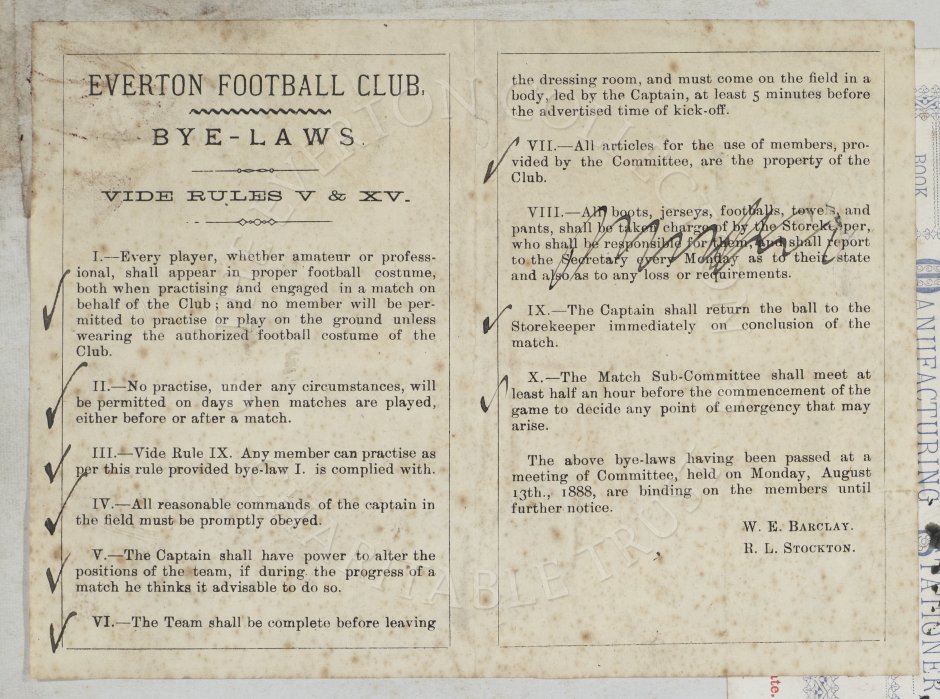 EVERTON FOOTBALL CLUB,
BYE-LAWS.
VIDE RULES V & XV.
I.—Every player, whether amateur or profess-
ional, shall appear in proper football costume,
both when practising and engaged in a match on
behalf of the Club; and no member will be per-
mitted to practise or play on the ground unless
wearing the authorized football costume of the
Club.
II.—No practise, under any circumstances, will
be permitted on days when matches are played,
either before or after a match.
III.—Vide Rule IX. Any member can practise as
per this rule provided bye-law I. is complied with.
IV.—All reasonable commands of the captain in
the field must be promptly obeyed.
V.—The Captain shall have power to alter the
positions of the team, if during the progress of a
match he thinks it advisable to do so.
VI.—The Team shall be complete before leaving
the dressing room, and must come on the field in a
body, led by the Captain, at least 5 minutes before
the advertised time of kick-off.
VII.—All articles for the use of members, pro-
vided by the Committee, are the property of the
Club.
VIII.—All boots, jerseys, footballs, towels, and
pants, shall be taken charge of by the Storekeeper,
who shall be responsible for them, and shall report
to the Secretary every Monday as to their state
and also as to any loss or requirements.
IX.—The Captain shall return the ball to the
Storekeeper immediately on conclusion of the
match.
X.—The Match Sub-Committee shall meet at
least half an hour before the commencement of the
game to decide any point of emergency that may
arise.
The above bye-laws having been passed at a
meeting of Committee, held on Monday, August
13th., 1888, are binding on the members until
further notice.
W. E. BARCLAY.
R. L. STOCKTON.
BOOK
MANUFACTURING
STATIONER